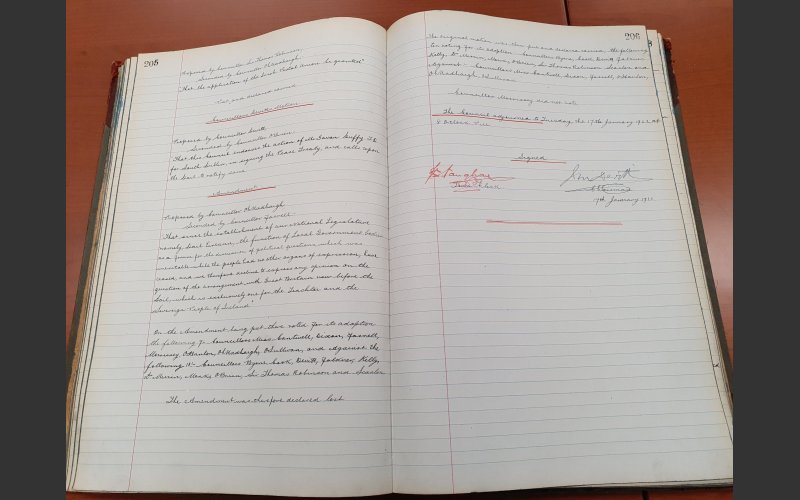 205
Proposed by Councillor Sir Thomas Robinson,
Seconded by Councillor O'Kadhaigh
"That the application of the Local Cadet Union be granted"
Put and declared carried
Councillors Scott's Motion
Proposed by Councillor Scott
Seconded by Councillor O'Brien
That this Council endorses the action of Mr Gavan Duffy T.D.
for South Dublin, in signing the Peace Treaty, and calls upon
the Dail to ratify same
Amendment
Proposed by Councillor O'Kadhaigh
Seconded by Councillor Farnell
That since the establishment of our National Legislative
namely, Dail Eireann, the function of Local Government bodies
as a forum for the discussion of political questions which was
inevitable while the people had no other organs of expression, have
ceased, and we therefore decline to express any opinion on the
question of the arrangement with Great Britain now before the
Dail, which is exclusively one for the Teachtai and the
Sovereign People of Ireland
On the Amendment being put there voted for its adoption
the following 7: Councillors Miss Cantwell, Dixon, Farnell,
Morrissey, O'Hanlon, O'Kadhaigh, O'Sullivan, and against the
following 11: Councillors Byrne, Cook, Devitt, Gardner, Kelly,
Dr Merrin, Meeks, O'Brien, Sir Thomas Robinson and Scanlon
The Amendment was therefore declared lost
206
The original motion was then put and declared carried, the following
ten voting for its adoption Councillors Byrne, Cook, Devitt, Gardner
Kelly, Dr Merrin, Meeks, O'Brien, Sir Thomas Robinson Scanlon and
Against Councillors Miss Cantwell, Dixon, Farnell, O'Hanlon,
O'Kadhaigh, O'Sullivan
Councillor Morrissey did not vote
The Council adjourned to Tuesday the 17th January 1922 at
8 O'Clock P.M.
Signed
Vaughan
Town Clerk
Chairman
17th January 1922